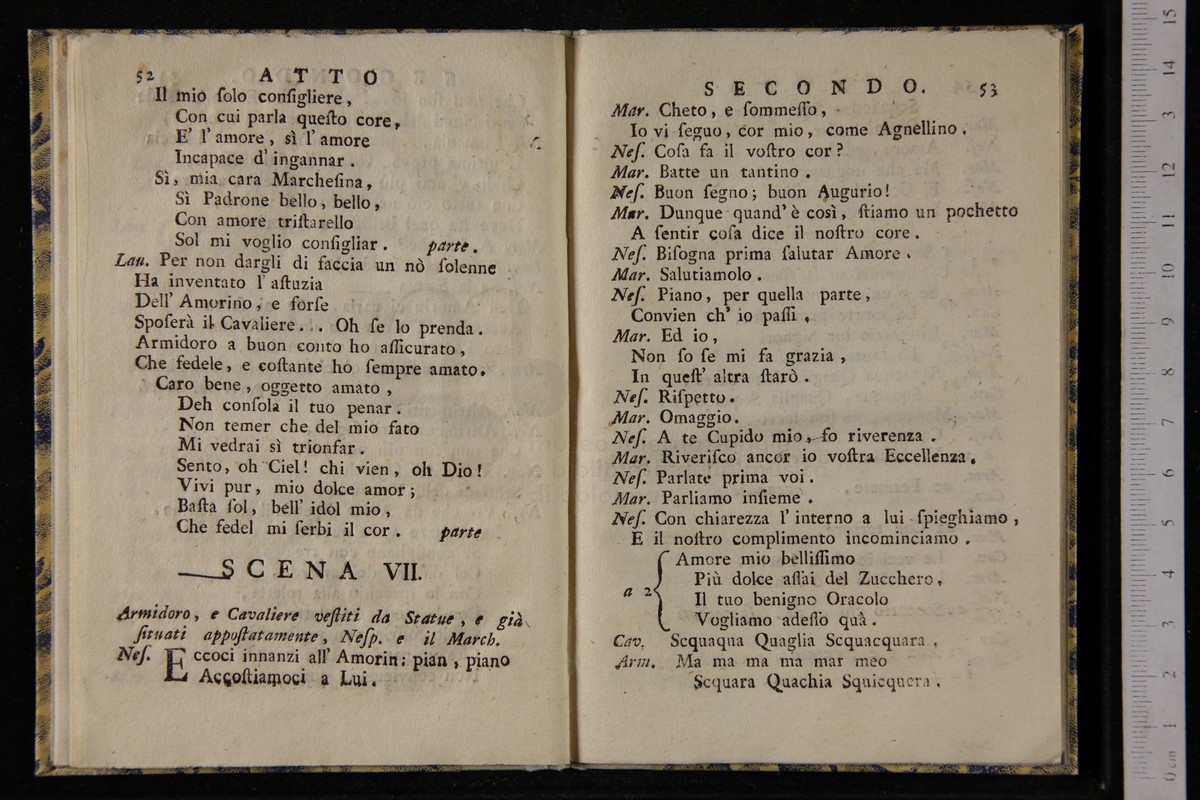 52 ATTO
Il mio ſolo conſigliere,
Con cui parla queſto core,
E' l'amore, sì l'amore
Incapace d'ingannar.
Sì, mia cara Marcheſina,
Sì Padrone bello, bello,
Con amore triſtarello
Sol mi voglio conſigliar. parte.
Lau. Per non dargli di faccia un nò ſolenne
Ha inventato l'aſtuzia
Dell' Amorino, e forſe
Spoſerà il Cavaliere... Oh ſe lo prenda.
Armidoro a buon conto ho aſſicurato,
Che fedele, e coſtante ho ſempre amato.
Caro bene, oggetto amato,
Deh conſola il tuo penar.
Non temer che del mio fato
Mi vedrai sì trionfar.
Sento, oh Ciel! chi vien, oh Dio!
Vivi pur, mio dolce amor;
Baſta ſol, bell' idol mio,
Che fedel mi ſerbi il cor. parte
SCENA VII.
Armidoro, e Cavaliere veſtiti da Statue, e già
ſituati appoſtatamente, Neſp. e il March.
Neſ. Eccoci innanzi all' Amorin: pian, piano
Accoſtiamoci a Lui.
SECONDO. 53
Mar. Cheto, e ſommeſſo,
Io vi ſeguo, cor mio, come Agnellino.
Neſ. Coſa fa il voſtro cor?
Mar. Batte un tantino.
Neſ. Buon ſegno; buon Augurio!
Mar. Dunque quand' è così, ſtiamo un pochetto
A ſentir coſa dice il noſtro core.
Neſ. Biſogna prima ſalutar Amore.
Mar. Salutiamolo.
Neſ. Piano, per quella parte,
Convien ch' io paſſi,
Mar. Ed io,
Non ſo ſe mi fa grazia,
In queſt' altra ſtarò.
Neſ. Riſpetto.
Mar. Omaggio.
Neſ. A te Cupido mio, fo riverenza.
Mar. Riveriſco ancor io voſtra Eccellenza.
Neſ. Parlate prima voi.
Mar. Parliamo inſieme.
Neſ. Con chiarezza l'interno a lui ſpieghiamo,
E il noſtro complimento incominciamo.
Amore mio belliſſimo
Più dolce aſſai del Zucchero,
a 2 Il tuo benigno Oracolo
Vogliamo adeſſo quà.
Cav. Scquaqua Quaglia Scquacquara,
Arm. Ma ma ma ma mar meo
Scquara Quachia Squicquera.
0 cm 1 2 3 4 5 6 7 8 9 10 11 12 13 14 15